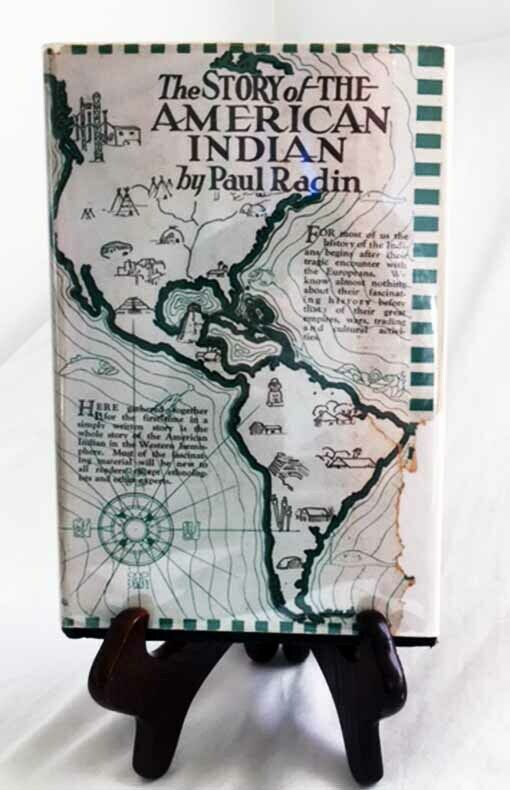 The STORY of THE
AMERICAN
INDIAN
by Paul Radin
FOR most of us the
history of the Indi-
ans begins after their
tragic encounter with
the Europeans. We
know almost nothing
about their fascinat-
ing history before
that: of their great
empires, wars, trading
and cultural activi-
ties.
HERE gathered together
for the first time in a
simply written story is the
whole story of the American
Indian in the Western Hemis-
phere. Most of the fascinat-
ing material will be new to
all readers except ethnolog-
ists and other experts.